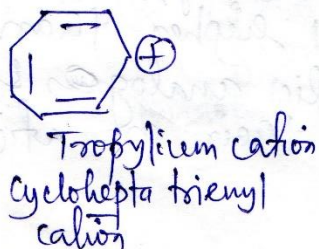 +
Tropylium cation
Cyclohepta trienyl
cation